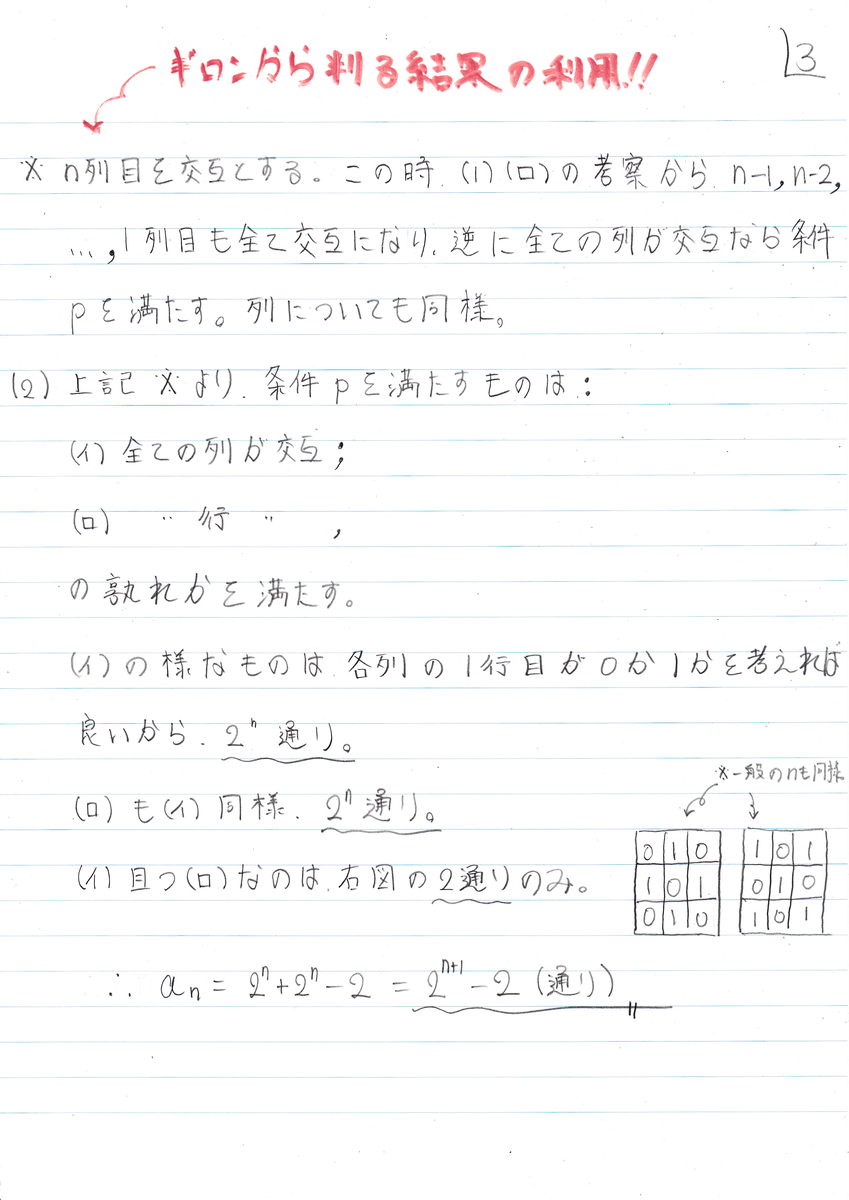 3
ギロンから判る結果の利用!!
※ n列目を交互とする。この時、(1)(ロ)の考察から、n-1, n-2,
…, 1列目も全て交互になり、逆に全ての列が交互なら条件
pを満たす。列についても同様。
(2) 上記※より、条件pを満たすものは:
(イ) 全ての列が交互;
(ロ) 〃 行 〃 ,
の孰れかを満たす。
(イ)の様なものは、各列の1行目が0か1かを考えれば
良いから、2^n 通り。
※一般のnも同様
(ロ)も(イ)同様、2^n 通り。
(イ)且つ(ロ)なのは、右図の2通りのみ。
0 1 0 1 0 1
1 0 1 0 1 0
0 1 0 1 0 1
∴ a_n = 2^n + 2^n - 2 = 2^{n+1} - 2 (通り)